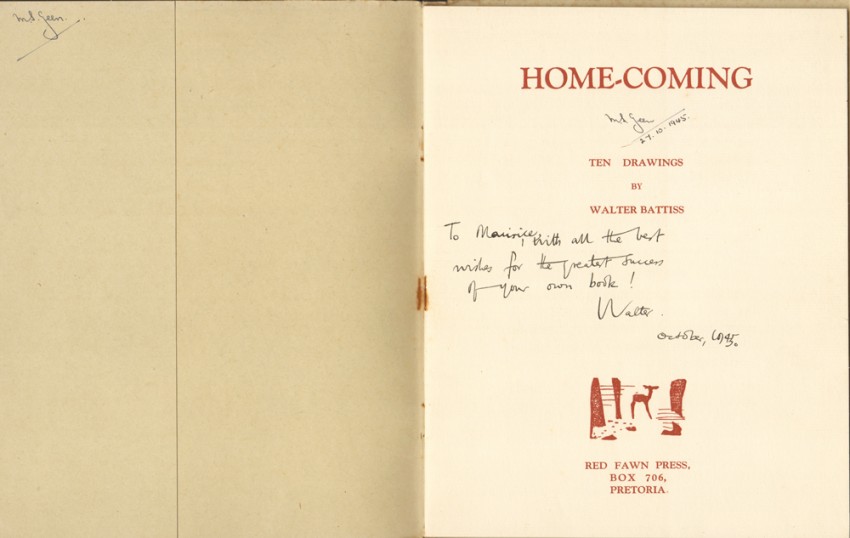 M.S. Geen.
HOME-COMING
M.S. Geen
27.10.1945.
TEN DRAWINGS
BY
WALTER BATTISS
To Maurice, with all the best
wishes for the greatest success
of your own book!
Walter.
October, 1945.
RED FAWN PRESS,
BOX 706,
PRETORIA.